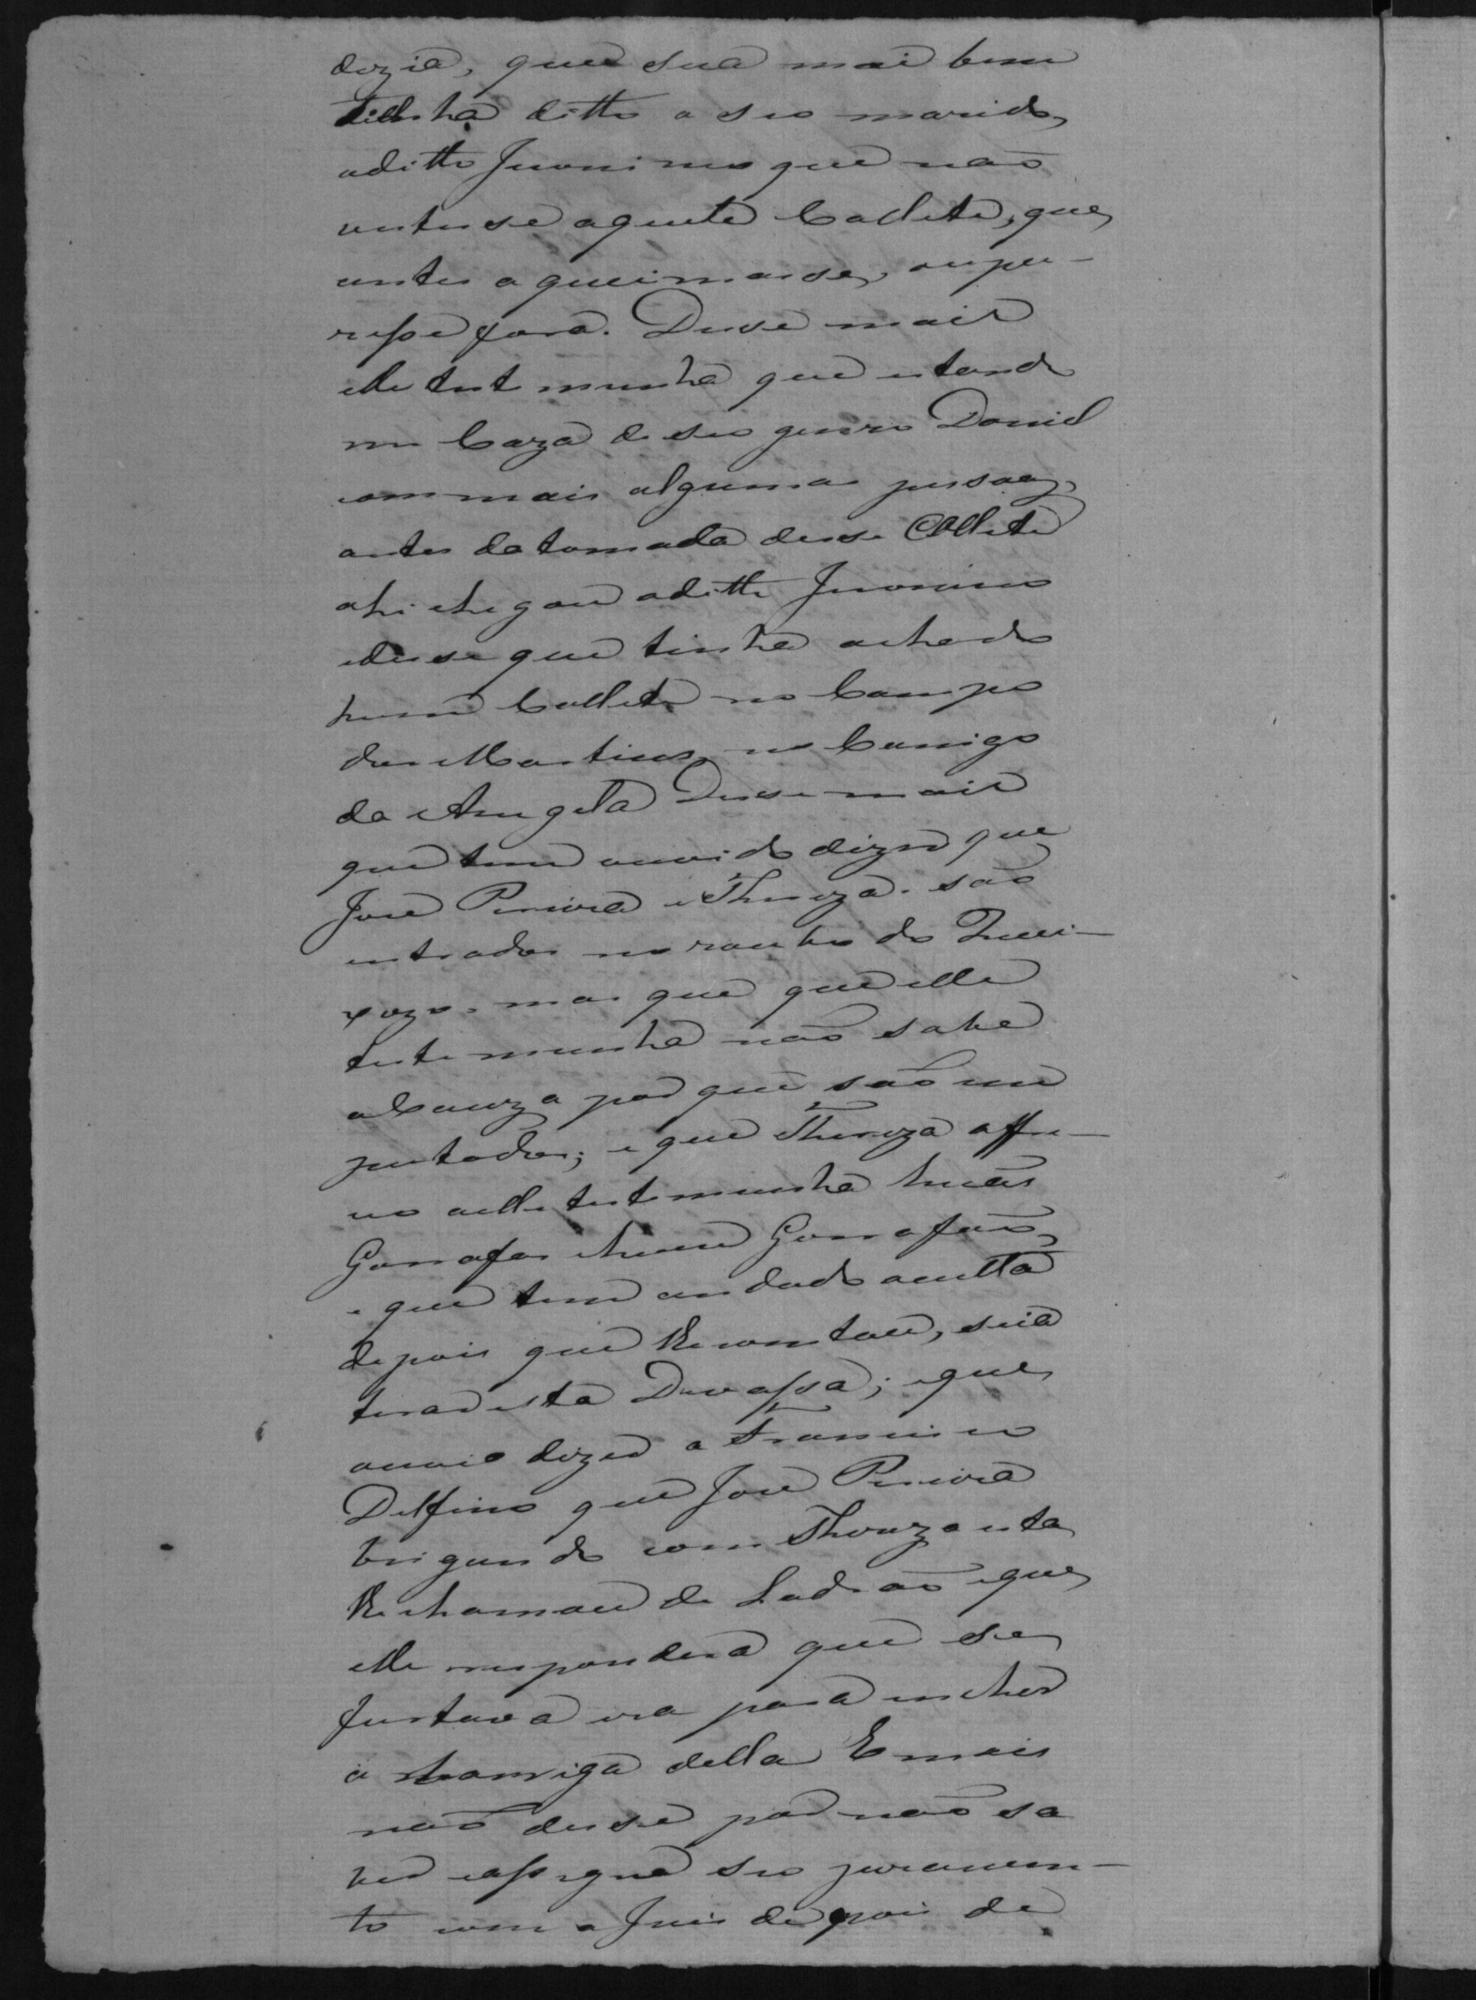 dizia, que sua mai bem
tinha ditto a seo marido,
oditto Jeronimo que não
vestisse aquele Collete, que
antes aqueimasse, oupu-
zesse fora. Disse mais
elle testemunha que estando
em Caza de seo genro Daniel
com mais algumas pessoas,
antes da tomada desse Collete
ahi chegou oditto Jeronimo
edisse que tinha achado
hum Collete no Campo
dos Martins, no Corrigo
da Angela Disse mais
que tem ouvido dizer que
José Pereira e Thereza são
entrados no roubo do Quei-
xozo, mas que que elle
testemunha não sabe
aCauza por que são um
putados; e que Thereza offre-
ceo aelle testemunha huãs
Garrafas ehum Garrafão,
e que tem andado oculta
depois que lhe constou, seia
tirar esta Devassa; eque
ouvio dizer a Francisco
Delfino que José Pereira
brigando com Thereza esta
lhe chamou de Ladrão eque
elle respondera que se
furtava era para encher
a barriga della E mais
não disse por não sa
ber eassigna seo juramen-
to com o Juis depois de